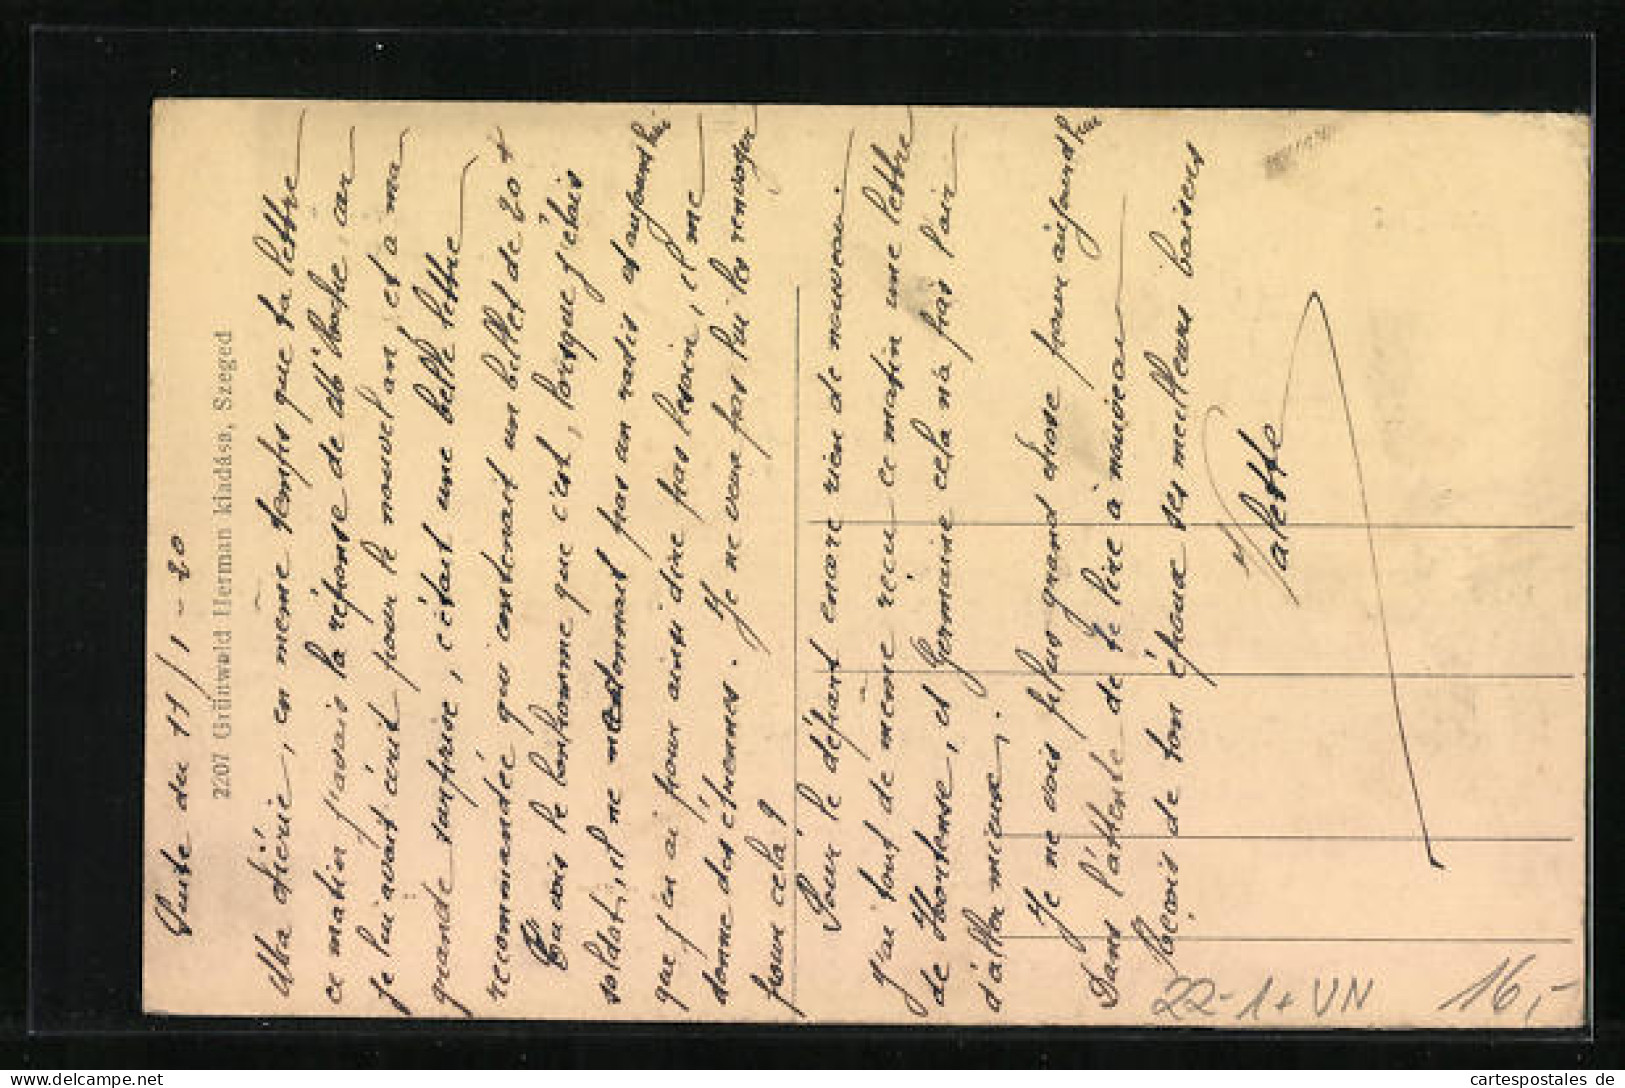 Suite du 11/1-20
2207 Grünwald Herman kiadása, Szeged
Ma chérie, en même temps que ta lettre
ce matin j'avais la réponse de Mr. car
je lui avait écrit pour le nouvel an, et a ma
grande surprise, c'était une belle lettre
recommandée qui contenait un billet de 20 f
Tu vois le bonhomme que c'est, lorsque j'étais
soldat, il ne me donnait pas un radis et aujourd'hui
que j'en ai pour ainsi dire pas besoin, il me
donne des étrennes. Je ne veux pas lui les renvoyer
pour cela!
Pour le départ encore rien de nouveau
j'ai tout de même reçu ce matin une lettre
de Hortense, et Germaine cela n'a pas l'air
d'aller mieux.
Je ne vois plus grand chose pour aujourd'hui
Dans l'attente de te lire à nouveau
Reçois de ton époux ses meilleurs baisers
Valette
22-1+VN
16,-
cartespostales de